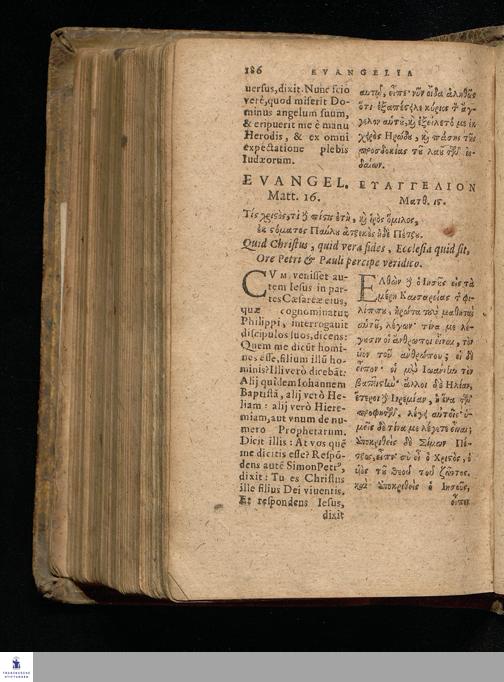 186 EVANGELIA
uersus, dixit. Nunc scio
verè, quod miserit Do-
minus angelum suum,
& eripuerit me è manu
Herodis, & ex omni
expectatione plebis
Iudæorum.
αυτῷ, εἶπε· νῦν οἶδα ἀληθῶς
ὅτι ἐξαπέστειλε κύριος τ ἄγ-
γελον αυτοῦ, καὶ ἐξείλετό με ἐκ
χειρὸς Ηρώδου, καὶ πάσης τῆς
προσδοκίας τοῦ λαοῦ τῶν ἰου-
δαίων.
EVANGEL.
Matt. 16.
ΕΥΑΓΓΕΛΙΟΝ
Ματθ. ις.
Τίς χριστὸς, τί ἡ πίστις ἐτὴ, καὶ ἱρὸς ὅμιλος,
ἐκ στόματος Παύλου ἀτρεκὲς ἠδὲ Πέτρου.
Quid Christus, quid vera fides, Ecclesia quid sit,
Ore Petri & Pauli percipe veridico.
CVM venisset au-
tem Iesus in par-
tes Cæsareæ eius,
quæ cognominatur
Philippi, interrogauit
discipulos suos, dicens:
Quem me dicūt homi-
nes esse, filium illū ho-
minis? Illi verò dicebāt:
Alij quidem Iohannem
Baptistā, alij verò He-
liam: alij verò Hiere-
miam, aut vnum de nu-
mero Prophetarum.
Dicit illis: At vos quē
me dicitis esse? Respō-
dens autē Simon Petrꝰ,
dixit: Tu es Christus
ille filius Dei viuentis.
Et respondens Iesus,
dixit
Ελθὼν δὲ ὁ Ιησοῦς εἰς τὰ
μέρη Καισαρείας τ φι-
λίππου, ἠρώτα τοὺς μαθητὰς
αὑτοῦ, λέγων· τίνα με λέ-
γουσιν οἱ ἄνθρωποι εἶναι, τὸν
υἱὸν τοῦ ἀνθρώπου; οἱ δὲ
εἶπον· οἱ μὲν Ιωάννην τὸν
βαπτιστὴν· ἄλλοι δὲ Ηλίαν,
ἕτεροι δὲ Ιηρεμίαν, ἢ ἕνα τῶν
προφητῶν. λέγει αυτοῖς· ὑ-
μεῖς δὲ τίνα με λέγετε εἶναι;
ἀποκριθεὶς δὲ Σίμων Πέ-
τρος, εἶπε· σὺ εἶ ὁ Χριστὸς, ὁ
υἱὸς τοῦ Θεοῦ τοῦ ζῶντος.
καὶ ἀποκριθεὶς ὁ Ιησοῦς,
εἶπεν